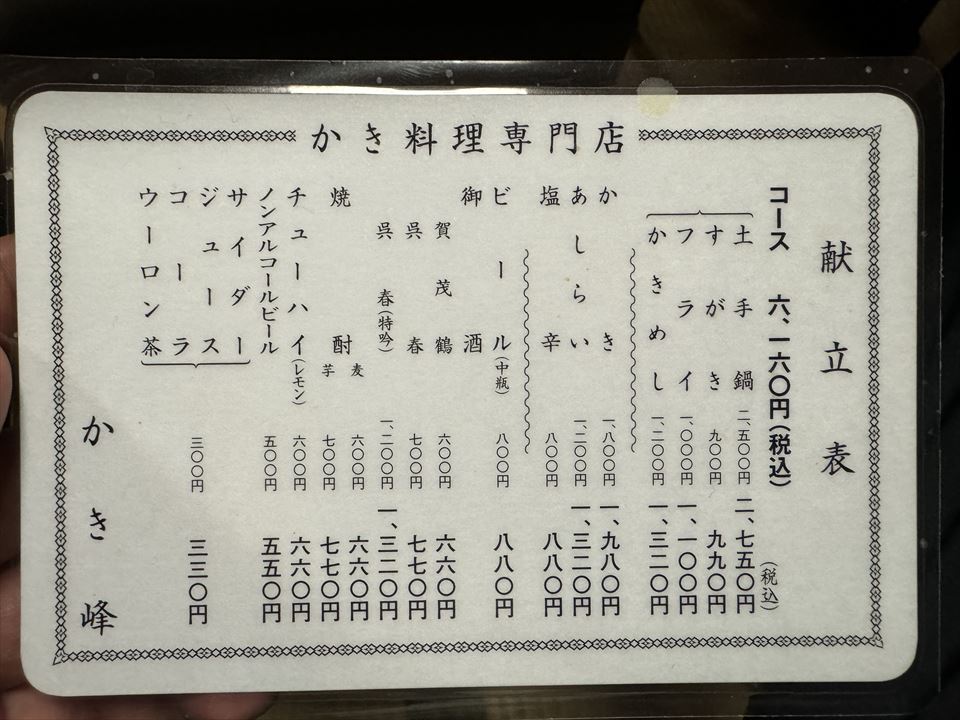 かき料理専門店
献立表
コース 六、一六〇円(税込)
(税込)
土手鍋 二、五〇〇円 二、七五〇円
すがき 九〇〇円 九九〇円
フライ 一、〇〇〇円 一、一〇〇円
かきめし 一、二〇〇円 一、三二〇円
かき 一、八〇〇円 一、九八〇円
あしらい 一、二〇〇円 一、三二〇円
塩辛 八〇〇円 八八〇円
ビール(中瓶) 八〇〇円 八八〇円
御酒
賀茂鶴 六〇〇円 六六〇円
呉春 七〇〇円 七七〇円
呉春(特吟) 一、二〇〇円 一、三二〇円
焼酎
麦 六〇〇円 六六〇円
芋 七〇〇円 七七〇円
チューハイ(レモン) 六〇〇円 六六〇円
ノンアルコールビール 五〇〇円 五五〇円
サイダー
ジュース
コーラ
ウーロン茶
三〇〇円 三三〇円
かき峰